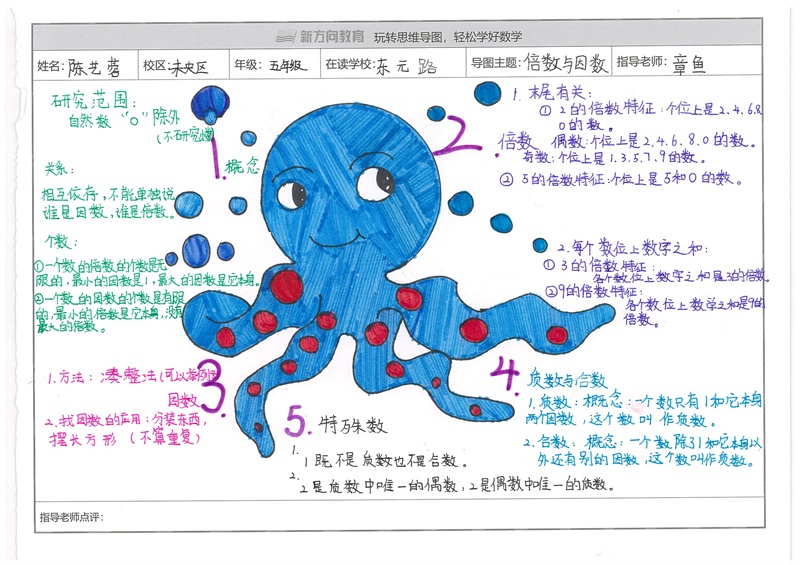 新方向教育 玩转思维导图，轻松学好数学
姓名：陈艺蓉 校区：未央区 年级：五年级 在读学校：东元路 导图主题：倍数与因数 指导老师：章鱼
研究范围：
自然数“0”除外
（不研究
1. 概念
关系：
相互依存，不能单独说
谁是因数，谁是倍数。
个数：
①一个数的倍数的个数是无
限的，最小的因数是1，最大的因数是它本身。
②一个数的因数的个数是有限
的，最小的倍数是它本身，没有
最大的倍数。
2. 倍数
1. 末尾有关：
①2的倍数特征：个位上是2.4.6.8.
0的数。
偶数：个位上是2.4.6.8.0的数。
有数：个位上是1.3.5.7.9的数。
②5的倍数特征：个位上是5和0的数。
2. 每个数位上数字之和：
①3的倍数特征：
各个数位上数字之和是3的倍数.
②9的倍数特征：
各个数位上数学之和是9的
倍数。
3.
因数
1. 方法：凑整法（可以
2. 找因数的应用：分装东西，
摆长方形（不算重复）
4. 质数与合数
1. 质数：概念：一个数只有1和它本身
两个因数，这个数叫作质数。
2. 合数：概念：一个数除了1和它本身以
外还有别的因数，这个数叫作质数。
5. 特殊数
1. 1既不是质数也不是合数。
2. 2是质数中唯一的偶数，2是偶数中唯一的质数。
指导老师点评：